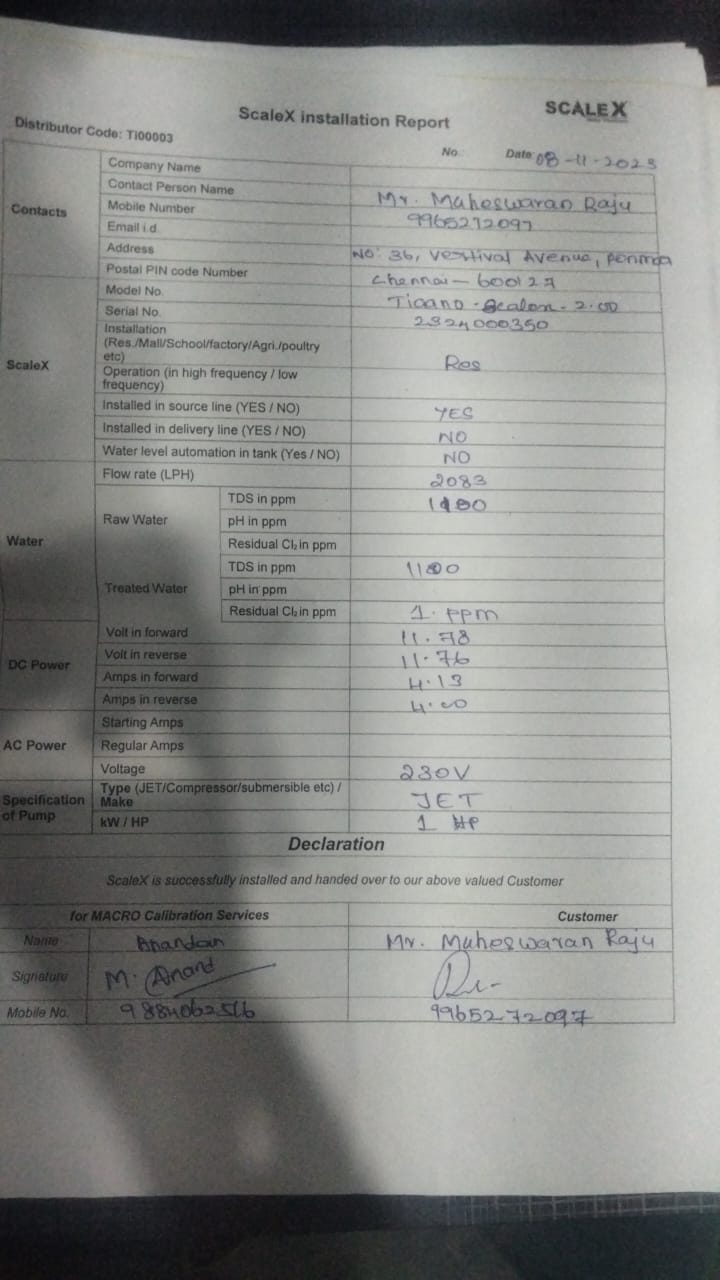 ScaleX installation Report
SCALEX
Distributor Code: TI00003
No.
Date 08-11-2023
Contacts
Company Name
Contact Person Name Mr. Maheswaran Raju
Mobile Number 9965272097
Email i.d.
Address No: 36, Vestival Avenue,
Postal PIN code Number Chennai - 600127
ScaleX
Model No. 2.00
Serial No. 2324000350
Installation
(Res./Mall/School/factory/Agri./poultry
etc) Res
Operation (in high frequency / low
frequency)
Installed in source line (YES / NO) YES
Installed in delivery line (YES / NO) NO
Water level automation in tank (Yes / NO) NO
Water
Flow rate (LPH) 2083
Raw Water
TDS in ppm
pH in ppm
Residual Cl₂ in ppm
Treated Water
TDS in ppm
pH in ppm
Residual Cl₂ in ppm 1. ppm
DC Power
Volt in forward 11.78
Volt in reverse 11.76
Amps in forward 4.13
Amps in reverse 4.00
AC Power
Starting Amps
Regular Amps
Voltage 230V
Specification
of Pump
Type (JET/Compressor/submersible etc) /
Make JET
kW / HP 1 HP
Declaration
ScaleX is successfully installed and handed over to our above valued Customer
for MACRO Calibration Services Customer
Name Anandan Mr. Maheswaran Raju
Signature M. Anand
Mobile No. 9884062516 9965272097